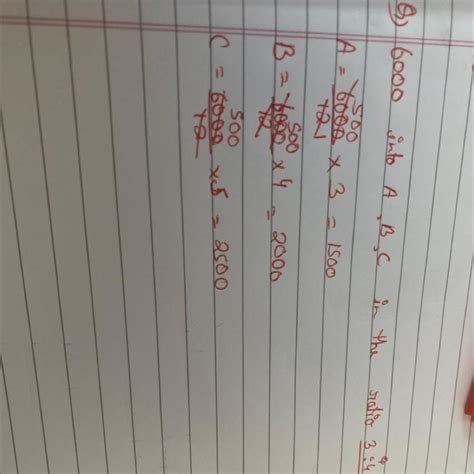 Q) 6000 into A, B, C in the ratio 3:
A = 500 6000/12 1 × 3 = 1500
B = 500 6000/12 × 4 = 2000
C = 500 6000/12 × 5 = 2500